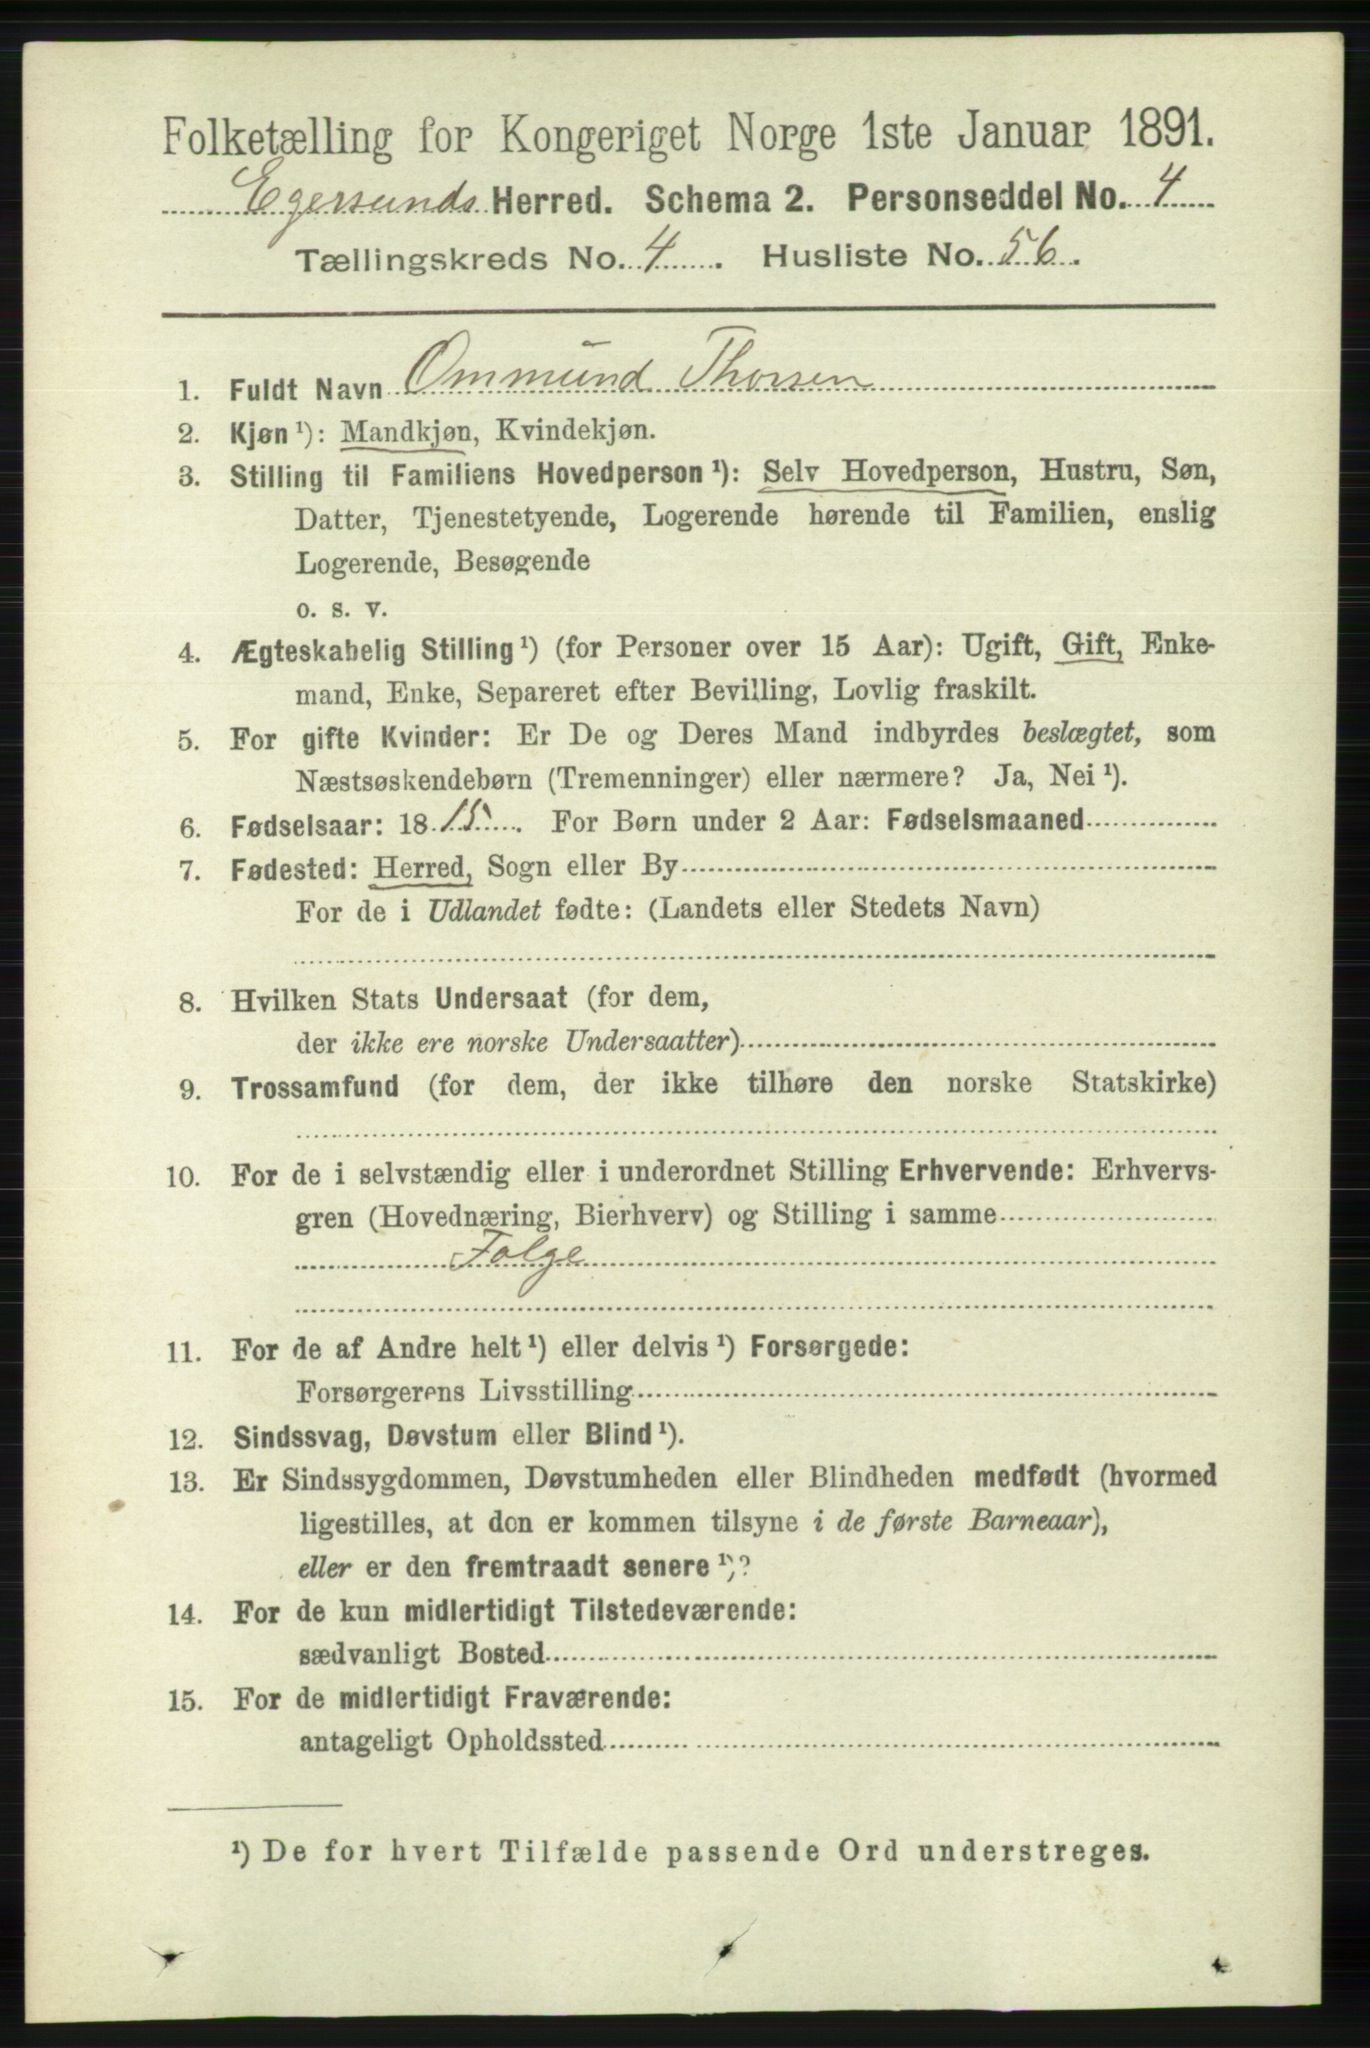 Folketælling for Kongeriget Norge 1ste Januar 1891.
Egersunds Herred. Schema 2. Personseddel No. 4
Tællingskreds No. 4. Husliste No. 56.
1. Fuldt Navn Ommund Thorsen
2. Kjøn¹): Mandkjøn, Kvindekjøn.
3. Stilling til Familiens Hovedperson¹): Selv Hovedperson, Hustru, Søn,
Datter, Tjenestetyende, Logerende hørende til Familien, enslig
Logerende, Besøgende
o. s. v.
4. Ægteskabelig Stilling¹) (for Personer over 15 Aar): Ugift, Gift, Enke-
mand, Enke, Separeret efter Bevilling, Lovlig fraskilt.
5. For gifte Kvinder: Er De og Deres Mand indbyrdes beslægtet, som
Næstsøskendebørn (Tremenninger) eller nærmere? Ja, Nei¹).
6. Fødselsaar: 1815. For Børn under 2 Aar: Fødselsmaaned
7. Fødested: Herred, Sogn eller By
For de i Udlandet fødte: (Landets eller Stedets Navn)
8. Hvilken Stats Undersaat (for dem,
der ikke ere norske Undersaatter)
9. Trossamfund (for dem, der ikke tilhøre den norske Statskirke)
10. For de i selvstændig eller i underordnet Stilling Erhvervende: Erhvervs-
gren (Hovednæring, Bierhverv) og Stilling i samme
Folge
11. For de af Andre helt¹) eller delvis¹) Forsørgede:
Forsørgerens Livsstilling
12. Sindssvag, Døvstum eller Blind¹).
13. Er Sindssygdommen, Døvstumheden eller Blindheden medfødt (hvormed
ligestilles, at den er kommen tilsyne i de første Barneaar),
eller er den fremtraadt senere¹)?
14. For de kun midlertidigt Tilstedeværende:
sædvanligt Bosted
15. For de midlertidigt Fraværende:
antageligt Opholdssted
¹) De for hvert Tilfælde passende Ord understreges.